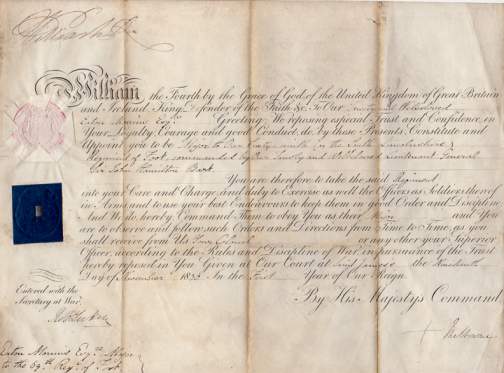 William R
William the Fourth by the Grace of God, of the United Kingdom of Great Britain
and Ireland King, Defender of the Faith &c. To Our Trusty and Wellbeloved
Eaton Monins Esqr. Greeting: We reposing especial Trust and Confidence, in
Your Loyalty, Courage and good Conduct, do by these Presents, Constitute and
Appoint you to be Major to Our
Regiment of Foot commanded by Our Trusty and Wellbeloved Lieutenant General
Sir John Hamilton Bart.
You are therefore to take the said Regiment
into your Care and Charge, and duly to Exercise as well the Officers as Soldiers thereof
in Arms and to use your best Endeavours to keep them in good Order and Discipline
And We do hereby Command Them to Obey You as their Major and You
are to observe and follow such Orders and Directions from Time to Time, as you
shall receive from Us Your Colonel or any other your Superior
Officer, according to the Rules and Discipline of War, in pursuance of the Trust
hereby reposed in You Given at Our Court at Saint James's the
Day of November 183 In the First Year of Our Reign.
Entered with the
Secretary at War
By His Majestys Command
Melbourne
Eaton Monins Esqr. Major
to the 69th Regt. of Foot